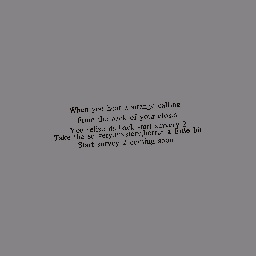 When you hear a strange calling
From the back of your closet
You relise its back start survery 2
Take the survery.mystery.horror a little bit
Start survey 2 coming soon